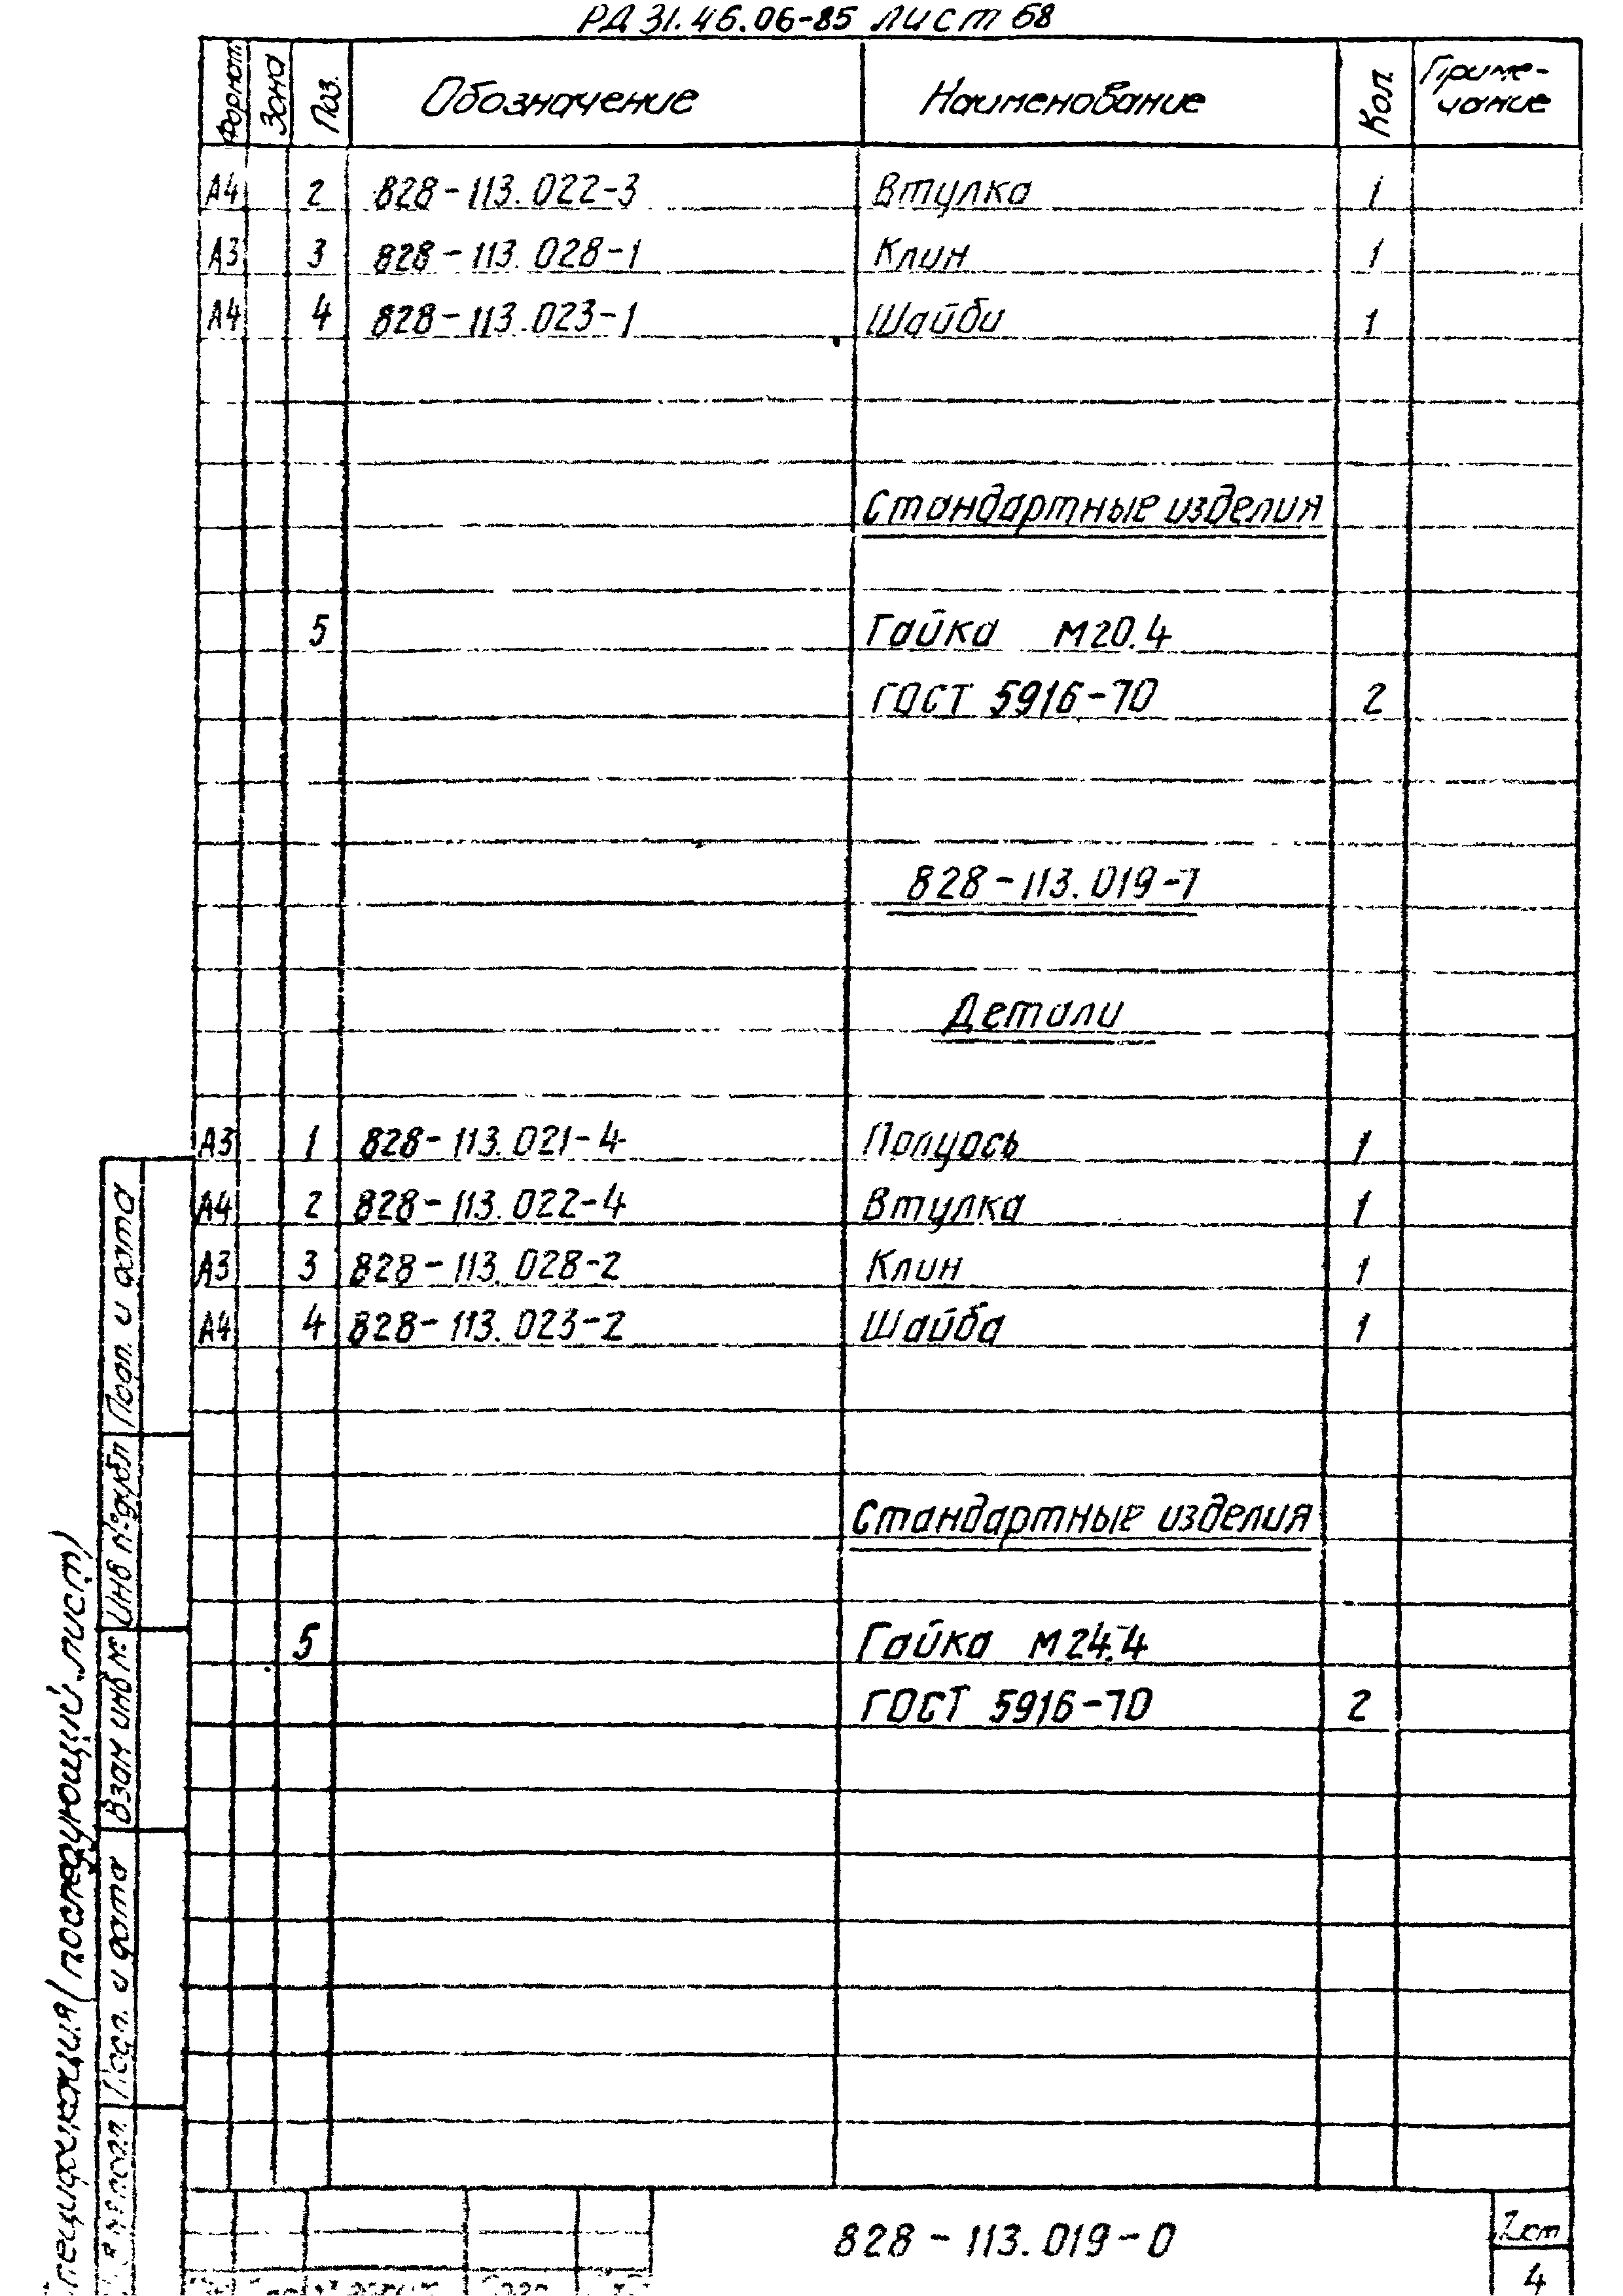 РД 31.46.06-85 лист 68
Формат Зона Поз. Обозначение Наименование Кол. Приме-
чание
А4 2 828-113.022-3 Втулка 1
А3 3 828-113.028-1 Клин 1
А4 4 828-113.023-1 Шайби 1
Стандартные изделия
5 Гайка М20.4
ГОСТ 5916-70 2
828-113.019-7
Детали
А3 1 828-113.021-4 Полуось 1
А4 2 828-113.022-4 Втулка 1
А3 3 828-113.028-2 Клин 1
А4 4 828-113.023-2 Шайба 1
Стандартные изделия
5 Гайка М24.4
ГОСТ 5916-70 2
828-113.019-0
4
(последующий лист)
Подп. и дата
Инв № дубл
Взам инв №
Подп. и дата